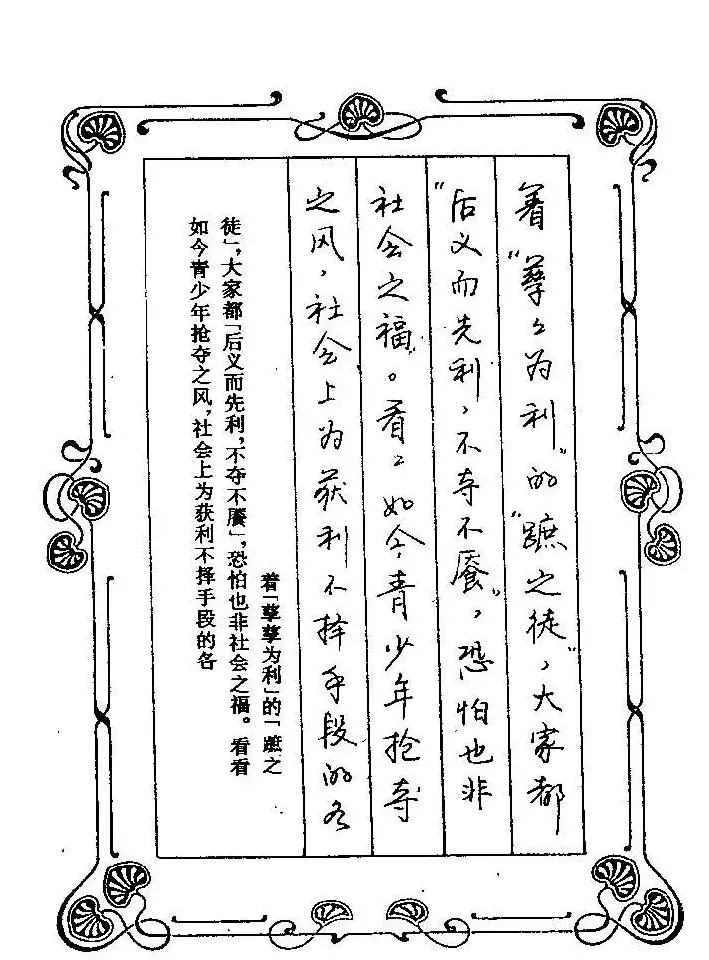 着“孳々为利”的“蹠之徒”，大家都
“后义而先利，不夺不餍”，恐怕也非
社会之福”。看々如今青少年抢夺
之风，社会上为获利不择手段的各
着「孳孳为利」的「蹠之
徒」，大家都「后义而先利，不夺不餍」，恐怕也非社会之福。看看
如今青少年抢夺之风，社会上为获利不择手段的各